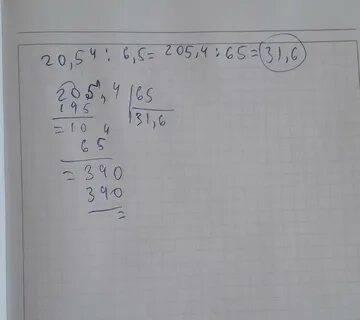 20,54 : 6,5= 205,4 : 65= 31,6
205,4 65
195 31,6
=10 4
65
=390
390
=